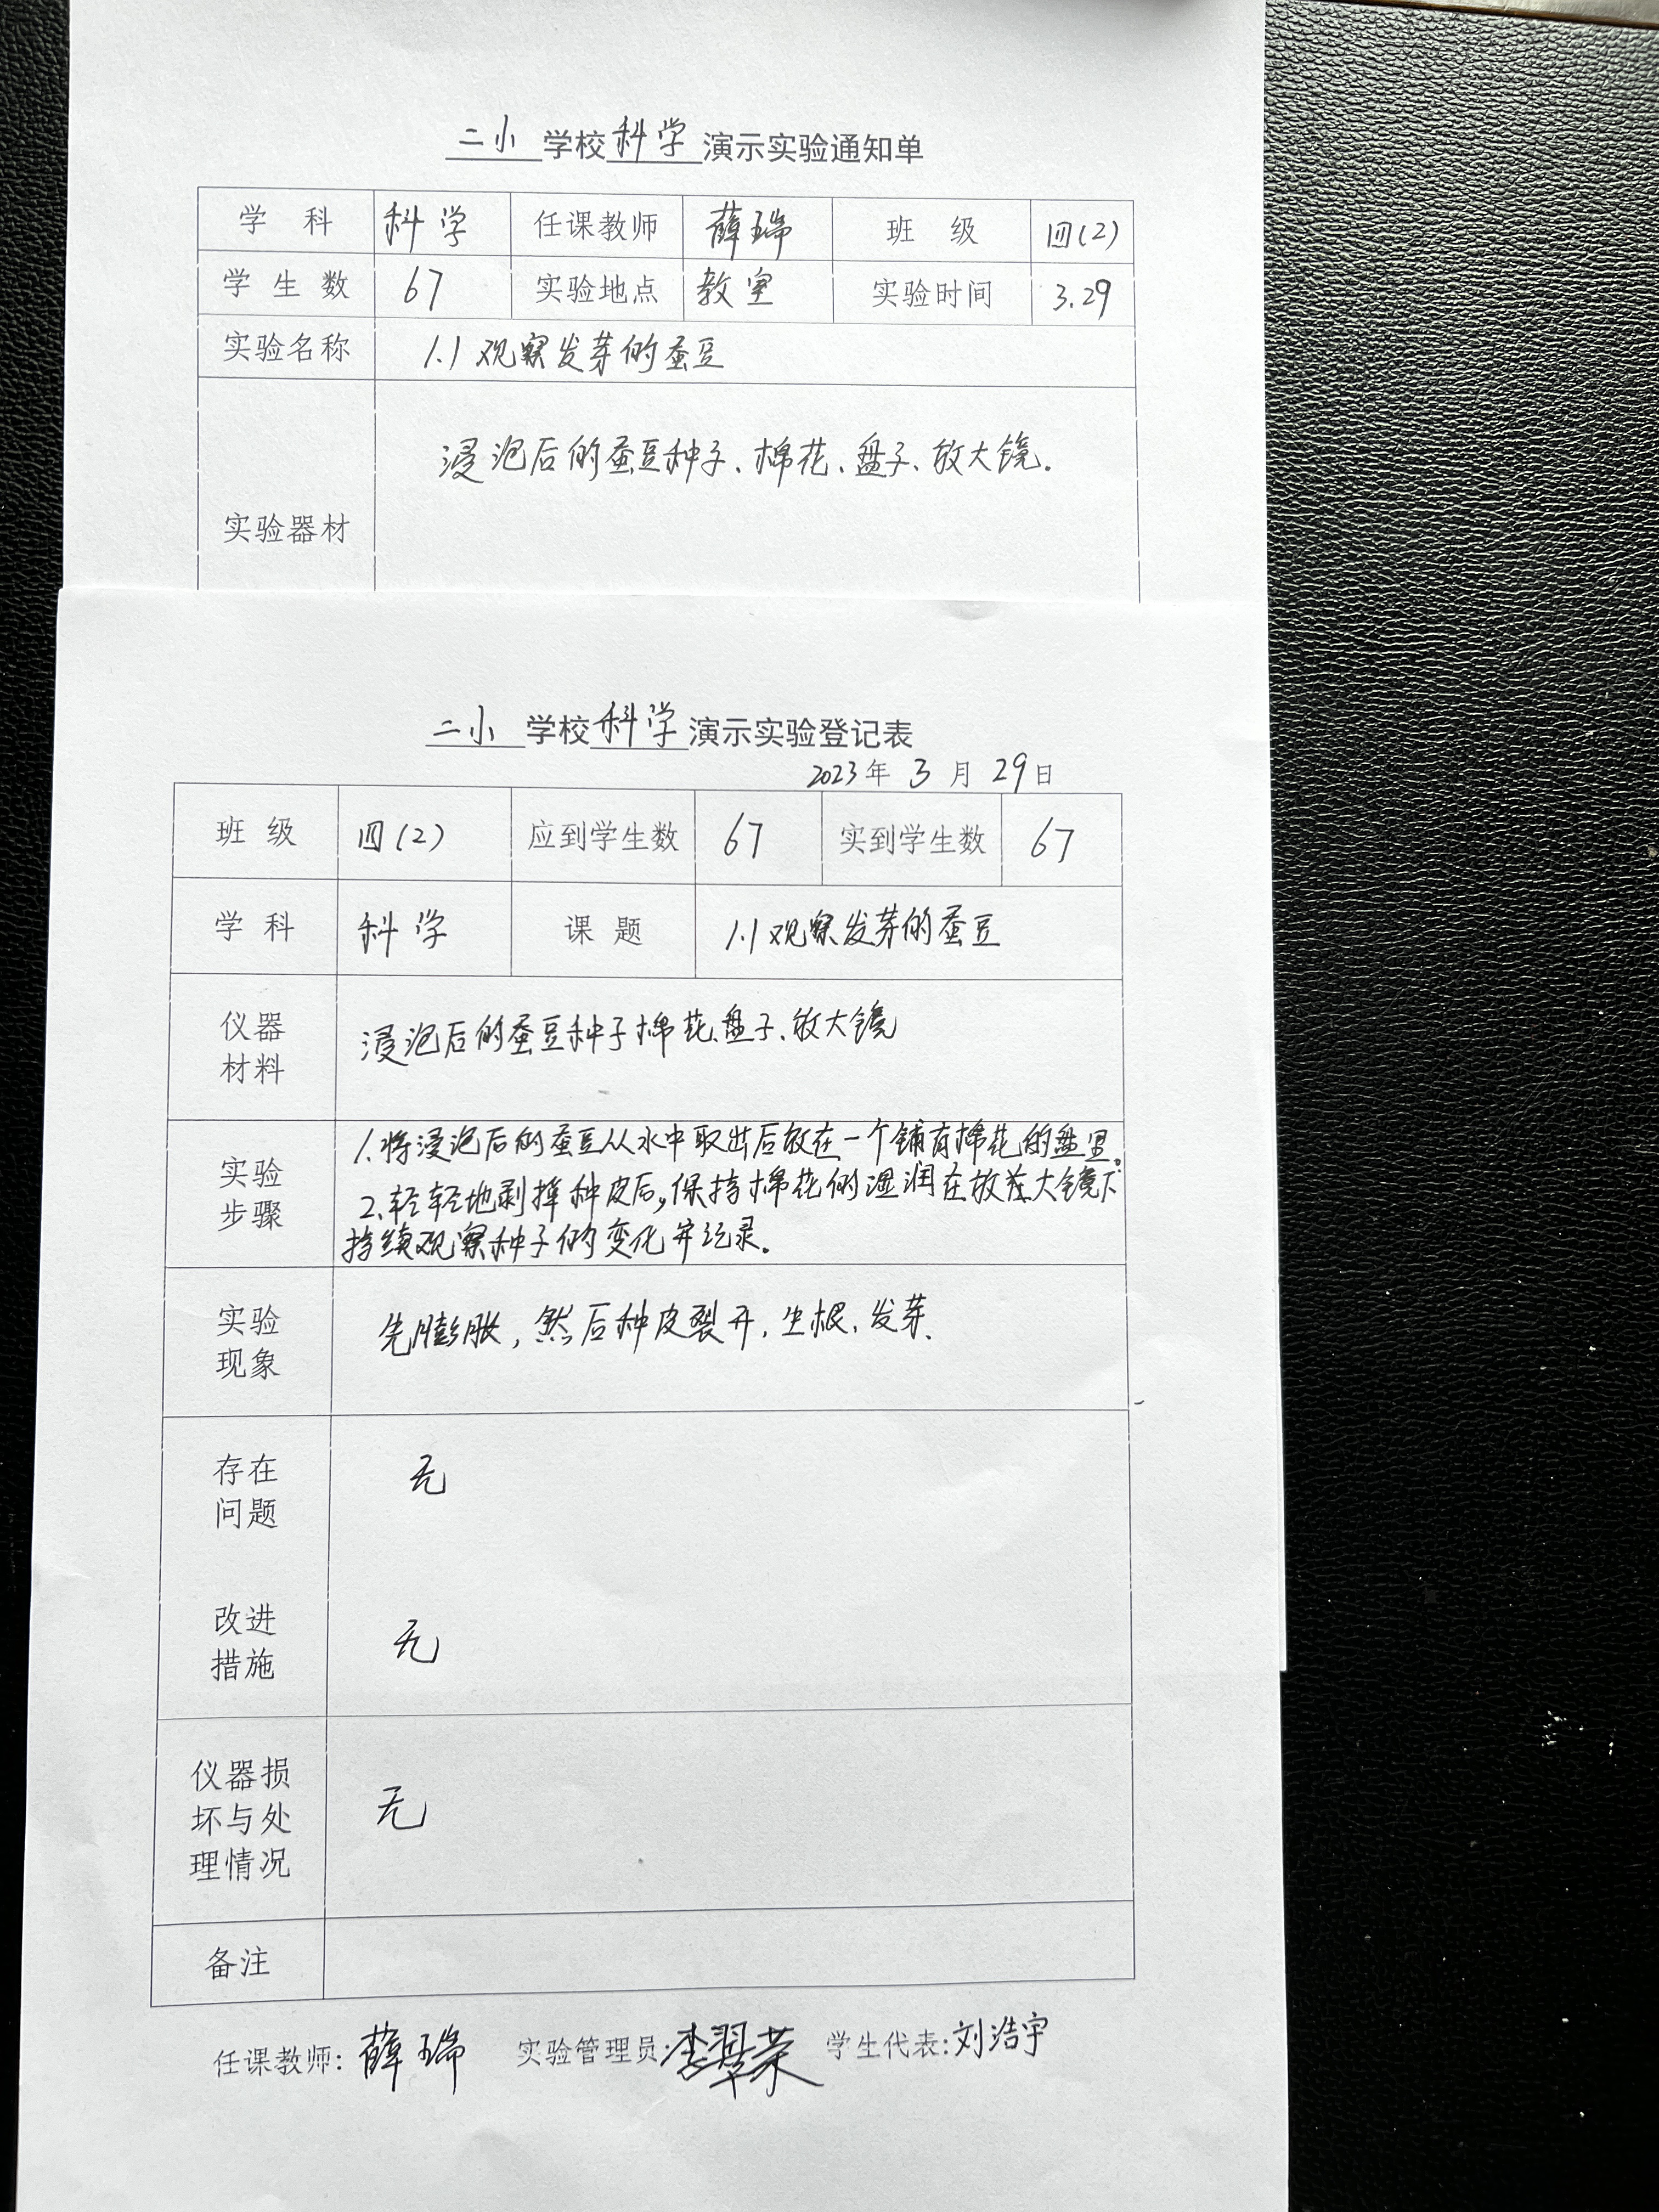 二小 学校 科学 演示实验通知单
学 科 科学 任课教师 薛瑞 班 级 四(2)
学 生 数 67 实验地点 教室 实验时间 3.29
实验名称 1.1 观察发芽的蚕豆
浸泡后的蚕豆种子、棉花、盘子、放大镜.
实验器材
二小 学校 科学 演示实验登记表
2023年 3 月 29日
班 级 四(2) 应到学生数 67 实到学生数 67
学 科 科学 课 题 1.1 观察发芽的蚕豆
仪器
材料
浸泡后的蚕豆种子棉花、盘子、放大镜
实验
步骤
1.将浸泡后的蚕豆从水中取出后放在一个铺有棉花的盘里。
2.轻轻地剥掉种皮后,保持棉花的湿润在放在大镜下
持续观察种子的变化并记录。
实验
现象
先膨胀,然后种皮裂开,生根、发芽.
存在
问题
无
改进
措施
无
仪器损
坏与处
理情况
无
备注
任课教师: 薛瑞 实验管理员: 李翠荣 学生代表: 刘浩宇